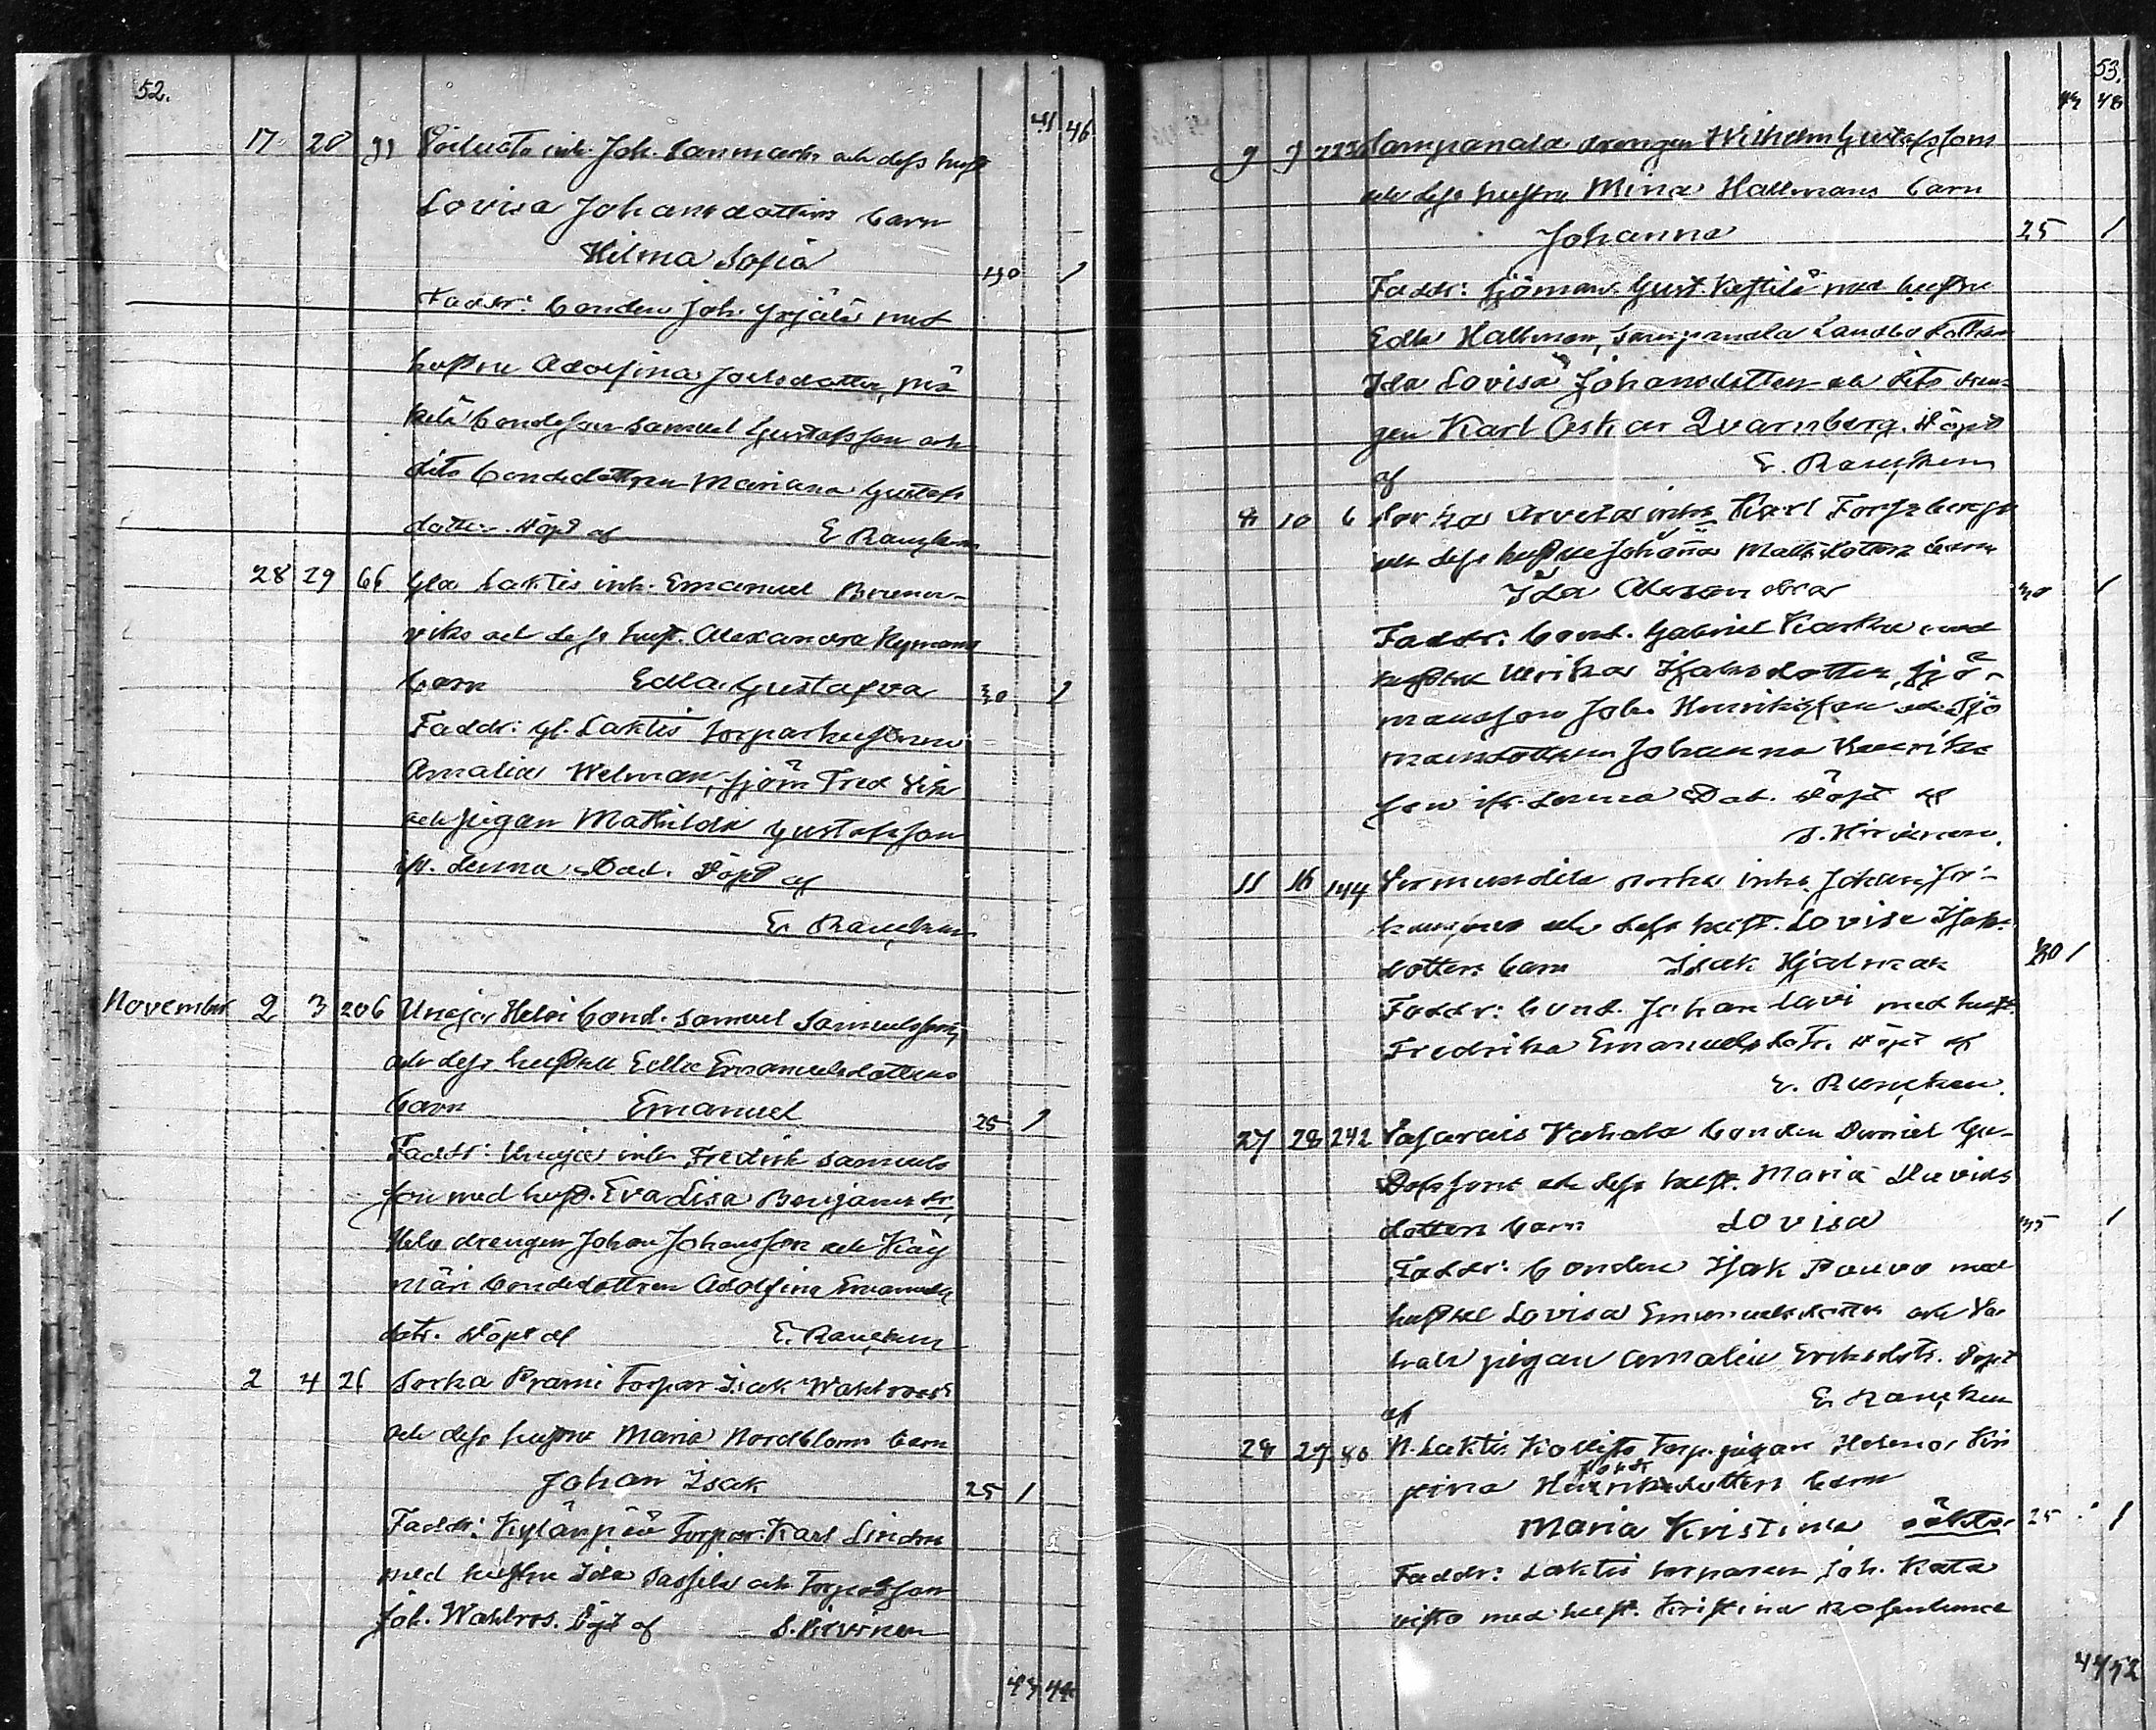 52.
41 46
17 20 91 inh. Joh. och dess hust
Lovisa Johansdotters barn
Hilma Sofia 40 1
Faddr: bonden Joh. med
hustru Adolfina Joelsdotter,
bondeson Samuel Gustafsson och
dito bondedottren Mariana Gustafs
dotter. Döpt af E. Rancken
28 29 66 Gla Laktis inh. Emanuel
viks och dess hust. Alexandra Nymans
barn Edla Gustafva 30 1
Faddr: gl. Laktis torparhustrun
Amalia Welman, sjöm Fred Vik
och pigan Mathilda Gustafsson
ifr. denna stad. Döpt af
E. Rancken
November 2 3 206 Unaja Heloi bond. Samuel Samuelssons
och dess hustru Edla Emanuelsdotters
barn Emanuel 25 1
Faddr: Unaja inh Fredrik Samuels
son med hust. Eva Lisa Benjamsdr,
Helo drengen Johan Johansson och
bondedottren Adolfina Emanuels
dotr. Döpt af E. Rancken
2 4 26 Sorka Prami Torpar. Isak Wahlroos
och dess hustru Maria Nordbloms barn
Johan Isak 25 1
Faddr: Kylänpää Torpar. Karl Lindru
med hustru Ida och Torparson
Joh. Wahlros. Döpt af S. Hirvinen
43 44
53.
43 48
9 9 Sampanala drengen Wilhelm Gustafssons
och dess hustru Mina Hallmans barn
Johanna 25 1
Faddr: sjöman Gust. Kestilä med hustru
Edla Hallman, Sampanala Landbo dottren
Ida Lovisa Johansdotter och dito dren-
gen Karl Oskar Qvarnberg. Döpt
af E. Rancken
8 10 6 Sorka Arvela inhs Karl Forssbergs
och dess hustru Johanna Matts dotters barn
Ida Alexandra 30 1
Faddr: bond. Gabriel Karkku med
hustru Ulrika Isaksdotter, sjö-
mansson Joh. Henriksson och sjö
mansdottren Johanna Henriks
son ifr. denna stad. Döpt af
S. Hirvinen.
11 16 144 inhs Johan
och dess hust. Lovisa Isaks
dotters barn Isak Hjalmar 30 1
Faddr: bond. Johan Lavi med hust.
Fredrika Emanuelsdotr. Döpt af
E. Rancken.
27 28 242 Vasarais Vahala bonden Daniel Gu-
stafssons och dess hust. Maria Davids
dotters barn Lovisa 35 1
Faddr: bonden Isak Pauvo med
hustru Lovisa Emanuelsdotter och Va
hala pigan Amalia Eriksdotr. Döpt
af E. Rancken
28 29 80 N. Laktis torp. pigan Helena
dotters barn
Maria Kristina oäkta 25 1
Faddr: Laktis torparen Joh. Kata
visto med hust. Kristina Rosenlund
44 52